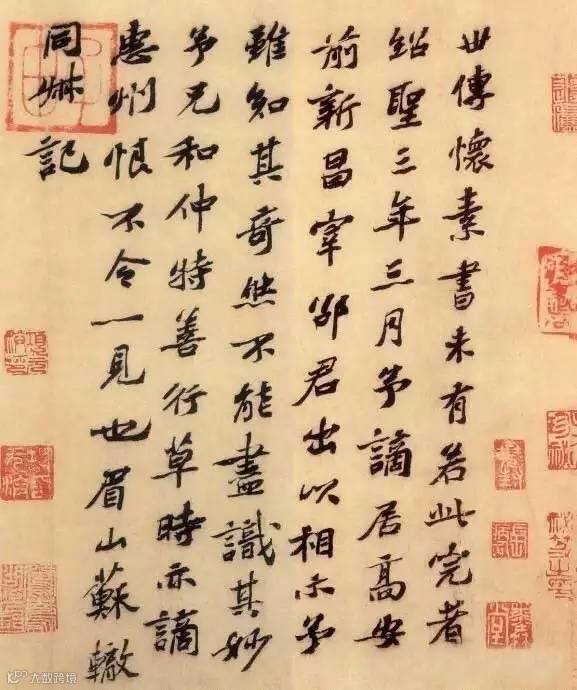 世傳懷素書未有若此完者
紹聖三年三月予謫居高安
前新昌宰邵君出以相示予
雖知其奇然不能盡識其妙
予兄和仲特善行草時亦謫
惠州恨不令一見也眉山蘇轍
同叔記
大数跨境